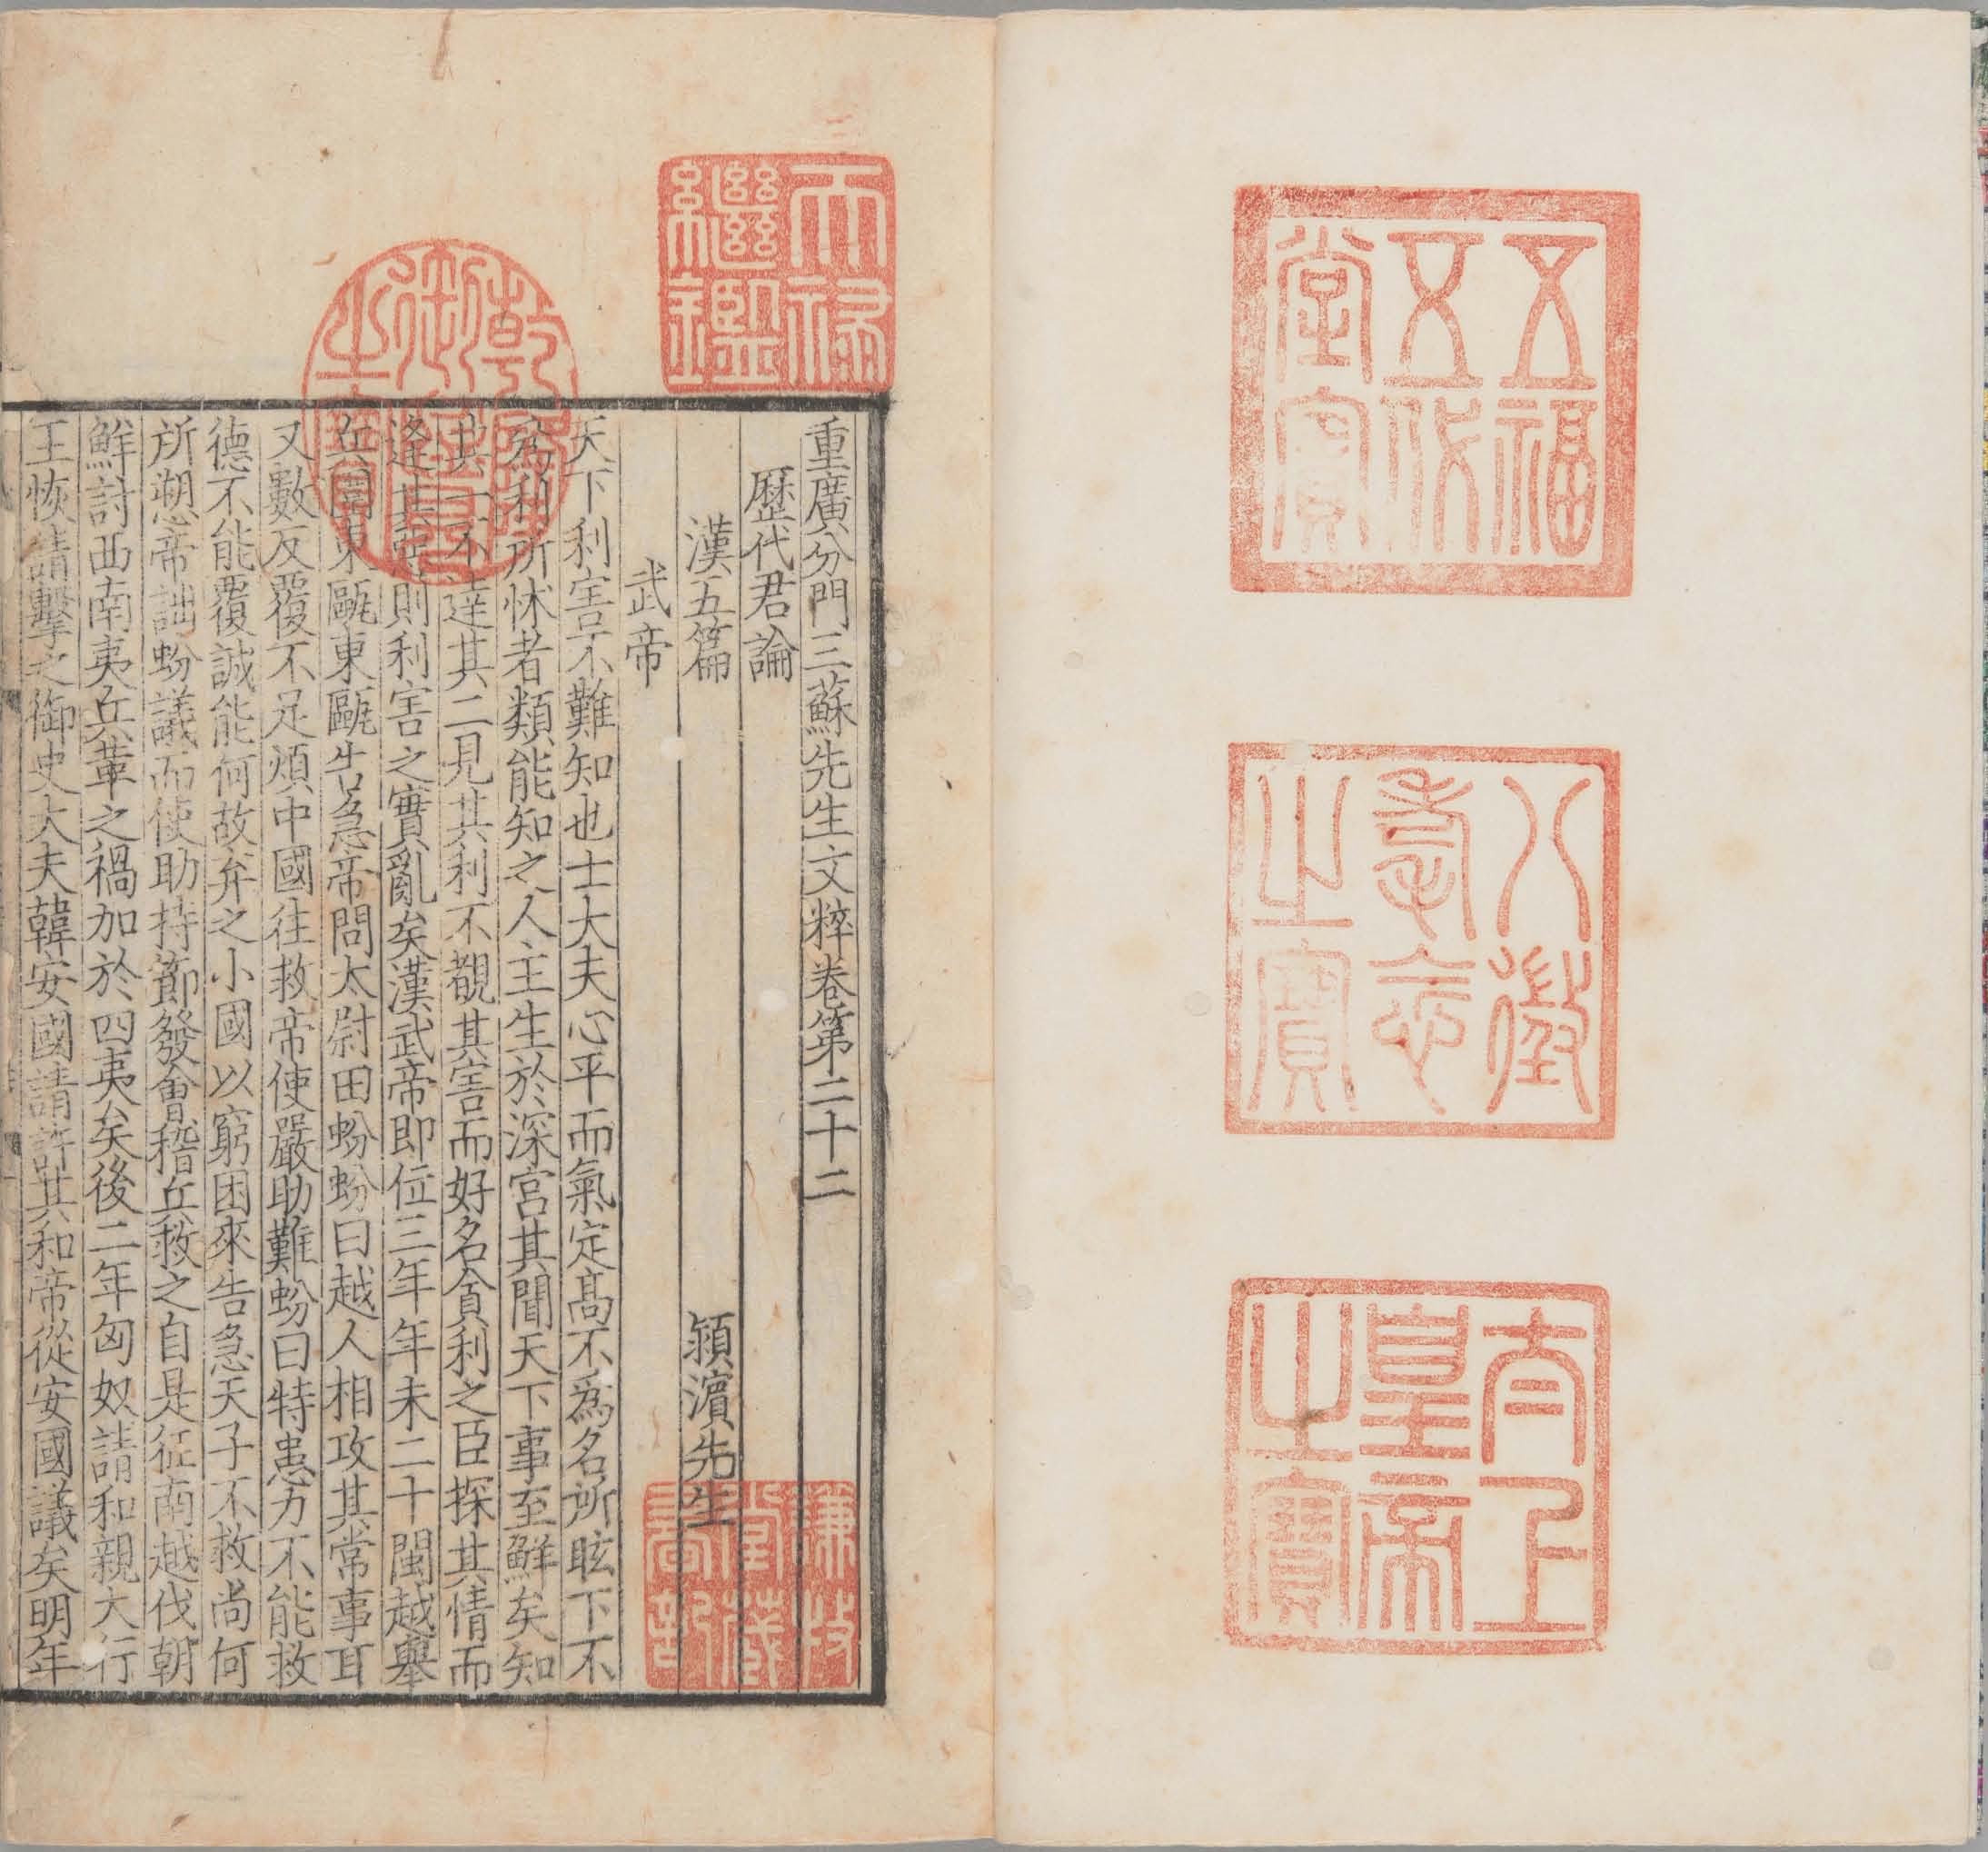 五福
五代
堂寶
八徵
耄念
之寶
太上
皇帝
之寶
天祿
繼鑑
乾隆
御覽
之寶
重廣分門三蘇先生文粹卷第二十二
歷代君論
漢五篇 潁濱先生
武帝
天下利害不難知也士大夫心平而氣定高不爲名所眩下不
爲利所怵者類能知之人主生於深宮其聞天下事至鮮矣知
其一不達其二見其利不覩其害而好名貪利之臣探其情而
逢其惡則利害之實亂矣漢武帝即位三年年未二十閩越舉
兵圍東甌東甌告急帝問太尉田蚡蚡曰越人相攻其常事耳
又數反覆不足煩中國往救帝使嚴助難蚡曰特患力不能救
德不能覆誠能何故弃之小國以窮困來告急天子不救尚何
所愬帝詘蚡議而使助持節發會稽兵救之自是征南越伐朝
鮮討西南夷兵革之禍加於四夷矣後二年匈奴請和親大行
王恢請擊之御史大夫韓安國請許其和帝從安國議矣明年
謙牧
堂藏
書記